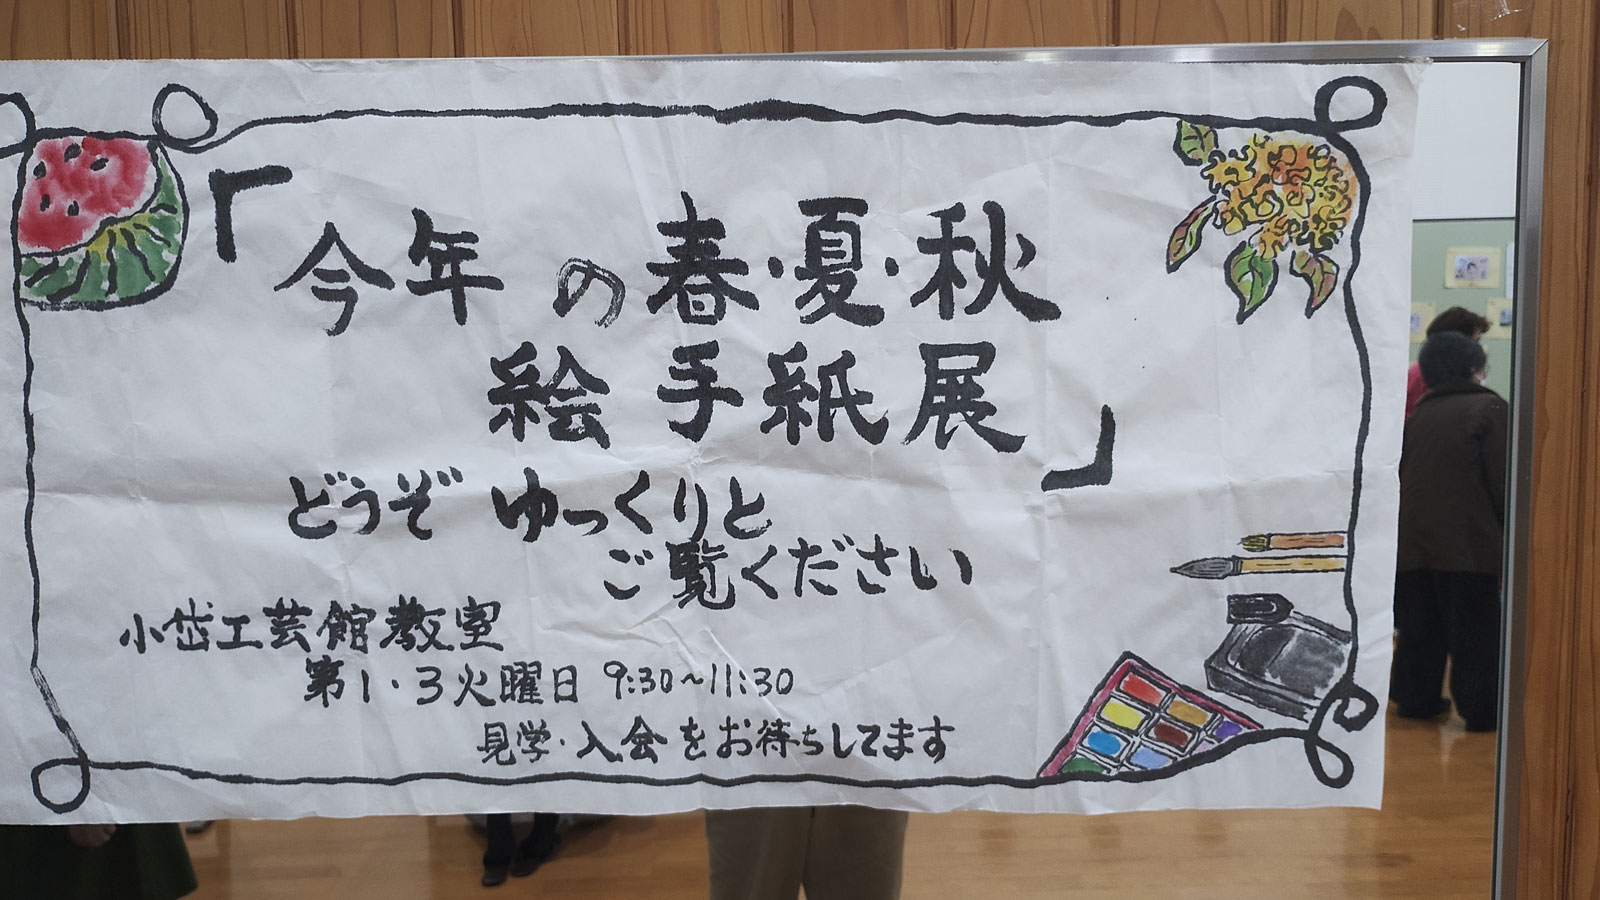 「今年の春・夏・秋
絵手紙展」
どうぞ ゆっくりと
ご覧ください
小岱工芸館教室
第1・3火曜日 9:30~11:30
見学・入会をお待ちしてます